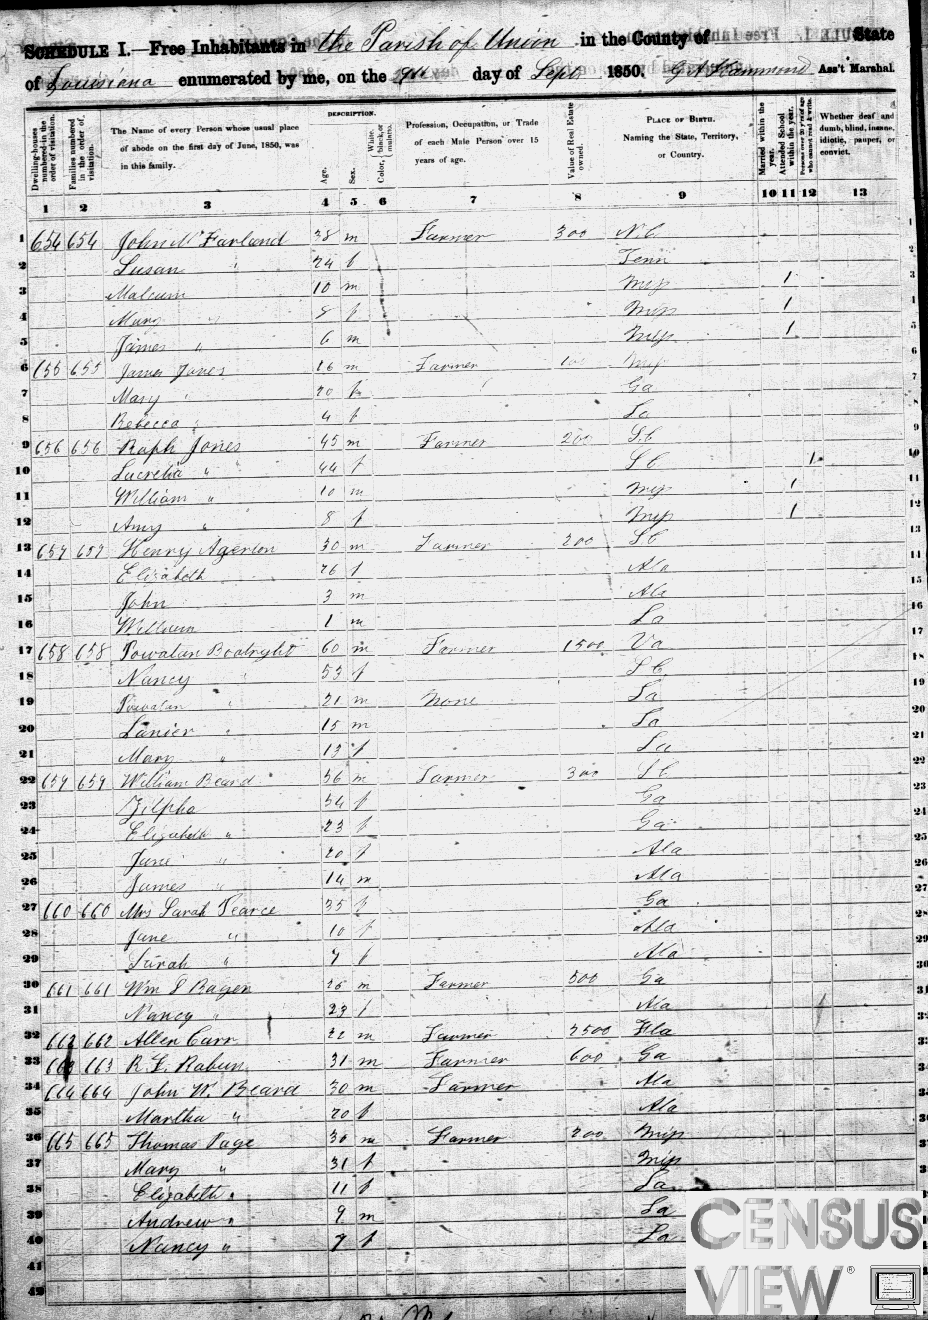 SCHEDULE I.—Free Inhabitants in the Parish of Union in the County of State
of Louisiana enumerated by me, on the 9th day of Sept 1850. Hammond Ass't Marshal.
Dwelling-houses numbered in the order of visitation.
Families numbered in the order of visitation.
The Name of every Person whose usual place of abode on the first day of June, 1850, was in this family.
DESCRIPTION.
Age.
Sex.
Color, White, black, or mulatto.
Profession, Occupation, or Trade of each Male Person over 15 years of age.
Value of Real Estate owned.
PLACE OF BIRTH. Naming the State, Territory, or Country.
Married within the year.
Attended School within the year.
Persons over 20 years of age who cannot read & write.
Whether deaf and dumb, blind, insane, idiotic, pauper, or convict.
1 2 3 4 5 6 7 8 9 10 11 12 13
1 654 654 John McFarland 38 m Farmer 300 N.C 1
2 Susan " 24 f Tenn 2
3 Malcum 10 m Miss 1 3
4 Mary " 8 f Miss 1
5 James " 6 m Miss 1 5
6 655 655 James Jones 26 m Farmer 100 Miss 6
7 Mary " 20 f Ga 7
8 Rebecca " 4 f La 8
9 656 656 Raph Jones 45 m Farmer 200 S.C 9
10 Lucretia " 44 f S C 1 10
11 William " 10 m Miss 1 11
12 Amy " 8 f Miss 1 12
13 657 657 Henry Agerton 30 m Farmer 200 S C 13
14 Elizabeth 26 f Ala 14
15 John 3 m Ala 15
16 William 1 m La 16
17 658 658 Powatan Boatright 60 m Farmer 1500 Va 17
18 Nancy " 53 f S C 18
19 Powatan " 21 m None La 19
20 Lanier " 15 m La 20
21 Mary " 13 f La 21
22 659 659 William Beard 56 m Farmer 300 S C 22
23 Zilpha 54 f Ga 23
24 Elizabeth " 23 f Ga 24
25 Jane " 20 f Ala 25
26 James " 14 m Ala 26
27 660 660 Mrs Sarah Pearce 35 f Ga 27
28 Jane " 10 f Ala 28
29 Sarah " 7 f Ala 29
30 661 661 Wm S Bagen 26 m Farmer 500 Ga 30
31 Nancy " 23 f Ala 31
32 662 662 Allen Carr 22 m Farmer 2500 Fla 32
33 663 663 R. L. Rabun 31 m Farmer 600 Ga 33
34 664 664 John W. Beard 30 m Farmer Ala 34
35 Martha " 20 f Ala 35
36 665 665 Thomas Page 30 m Farmer 200 Miss 36
37 Mary " 31 f Miss 37
38 Elizabeth " 11 f La
39 Andrew " 9 m La
40 Nancy " 7 f La
41
42
CENSUS
VIEW®